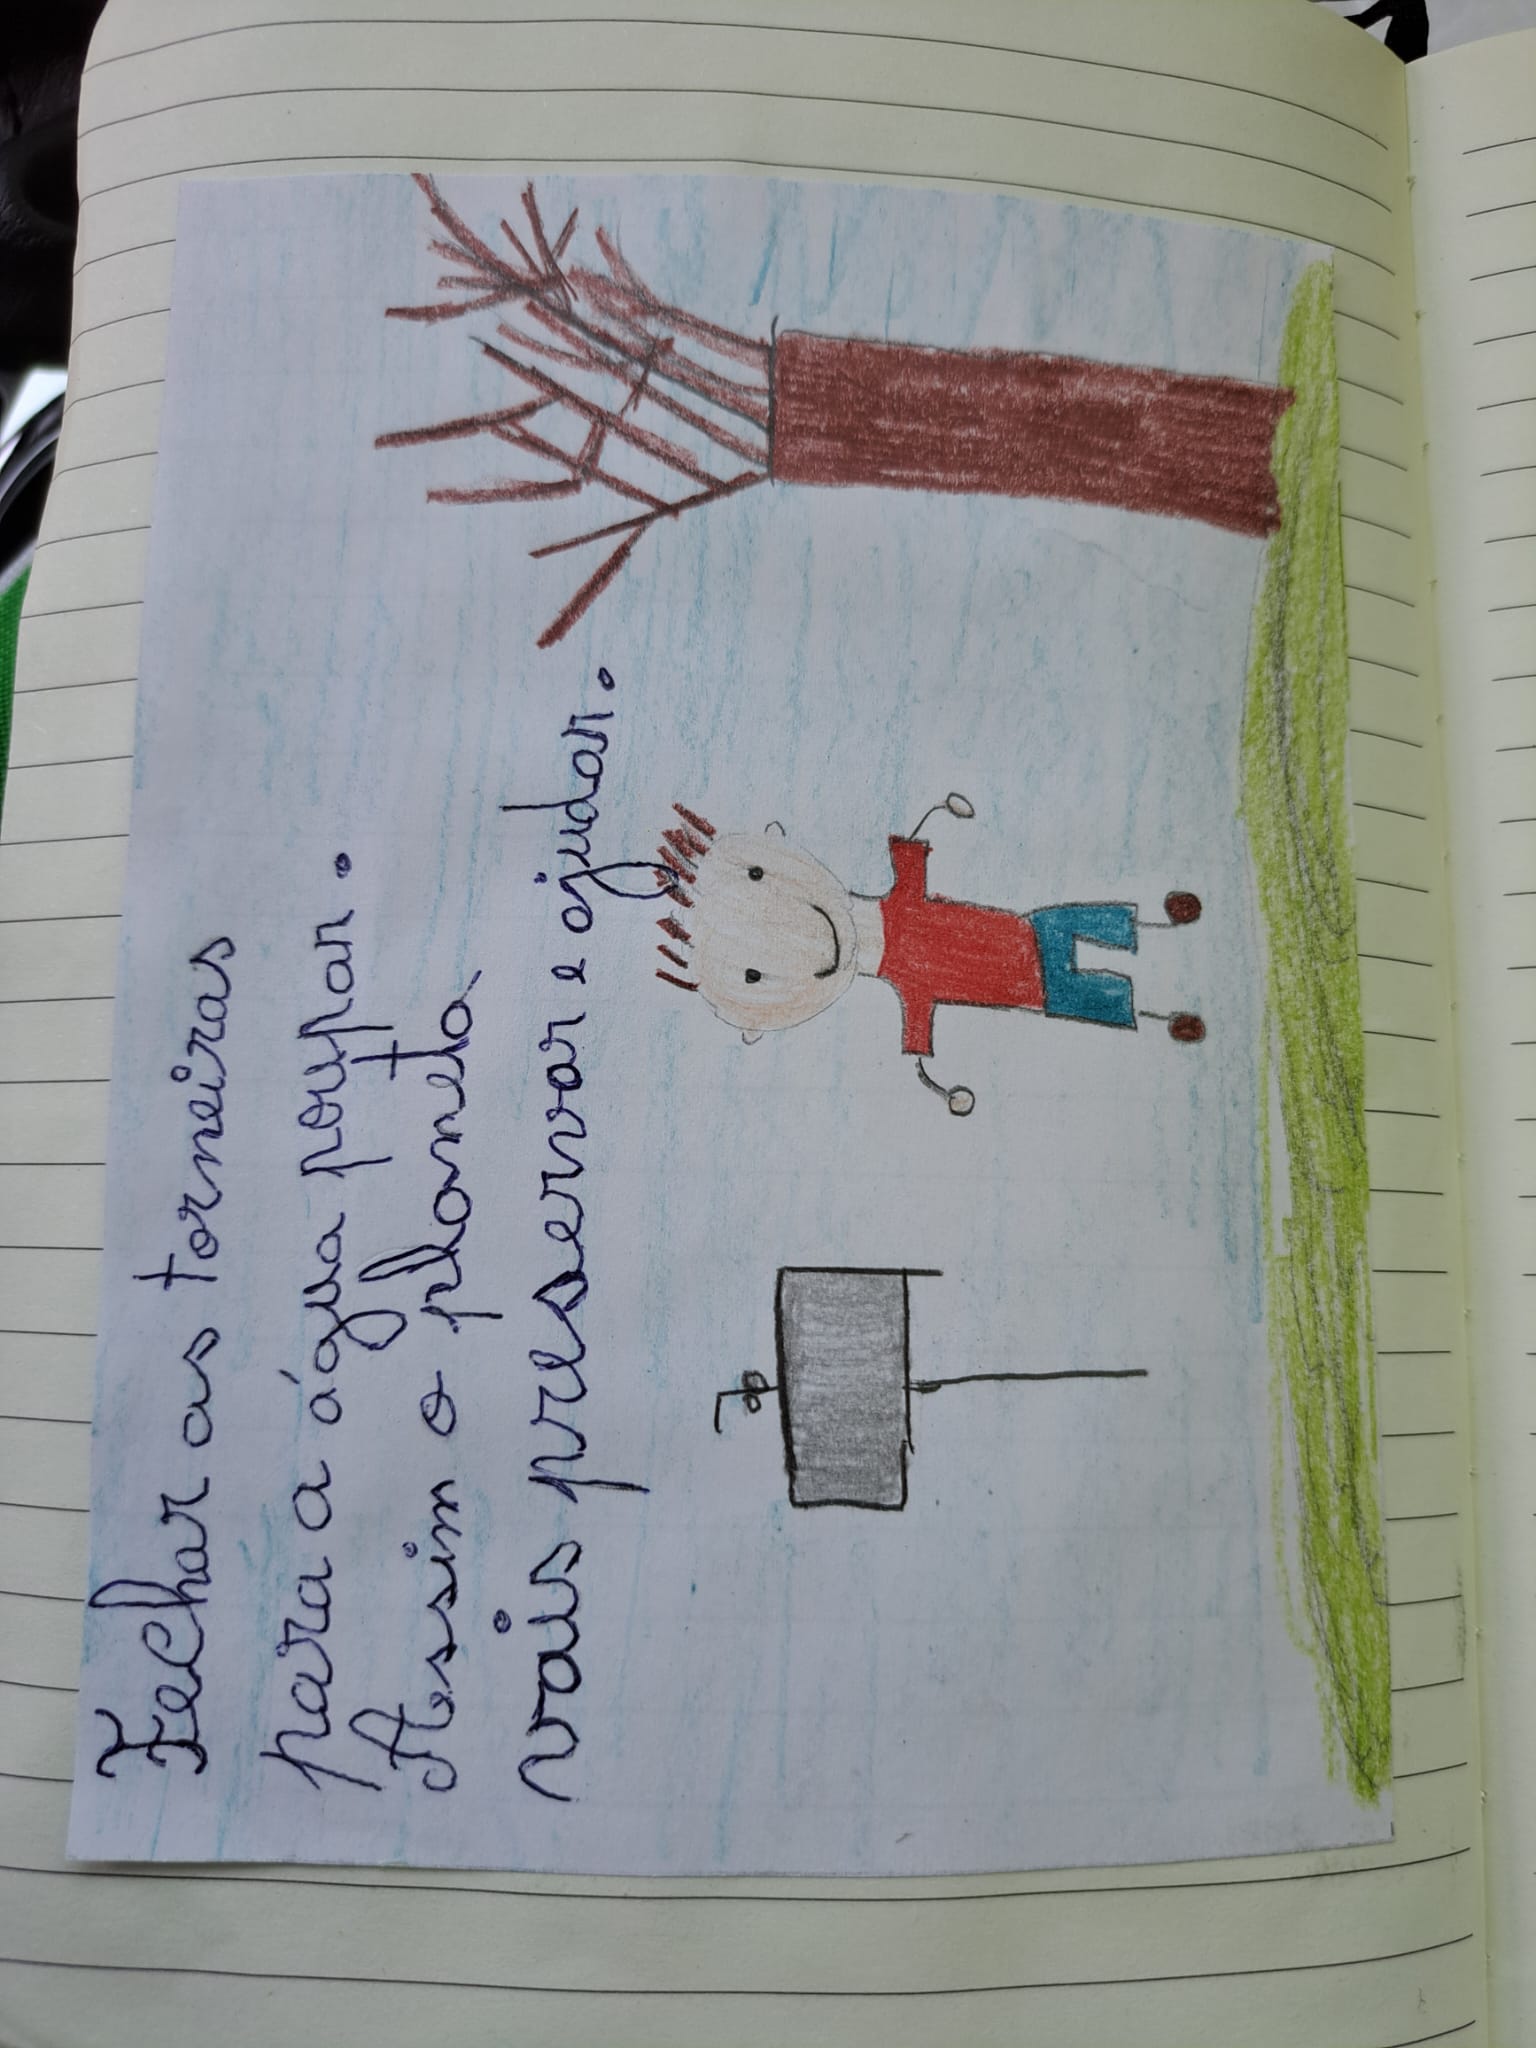 Fechar as torneiras
para a água poupar.
Assim o planeta
vais preservar e ajudar.